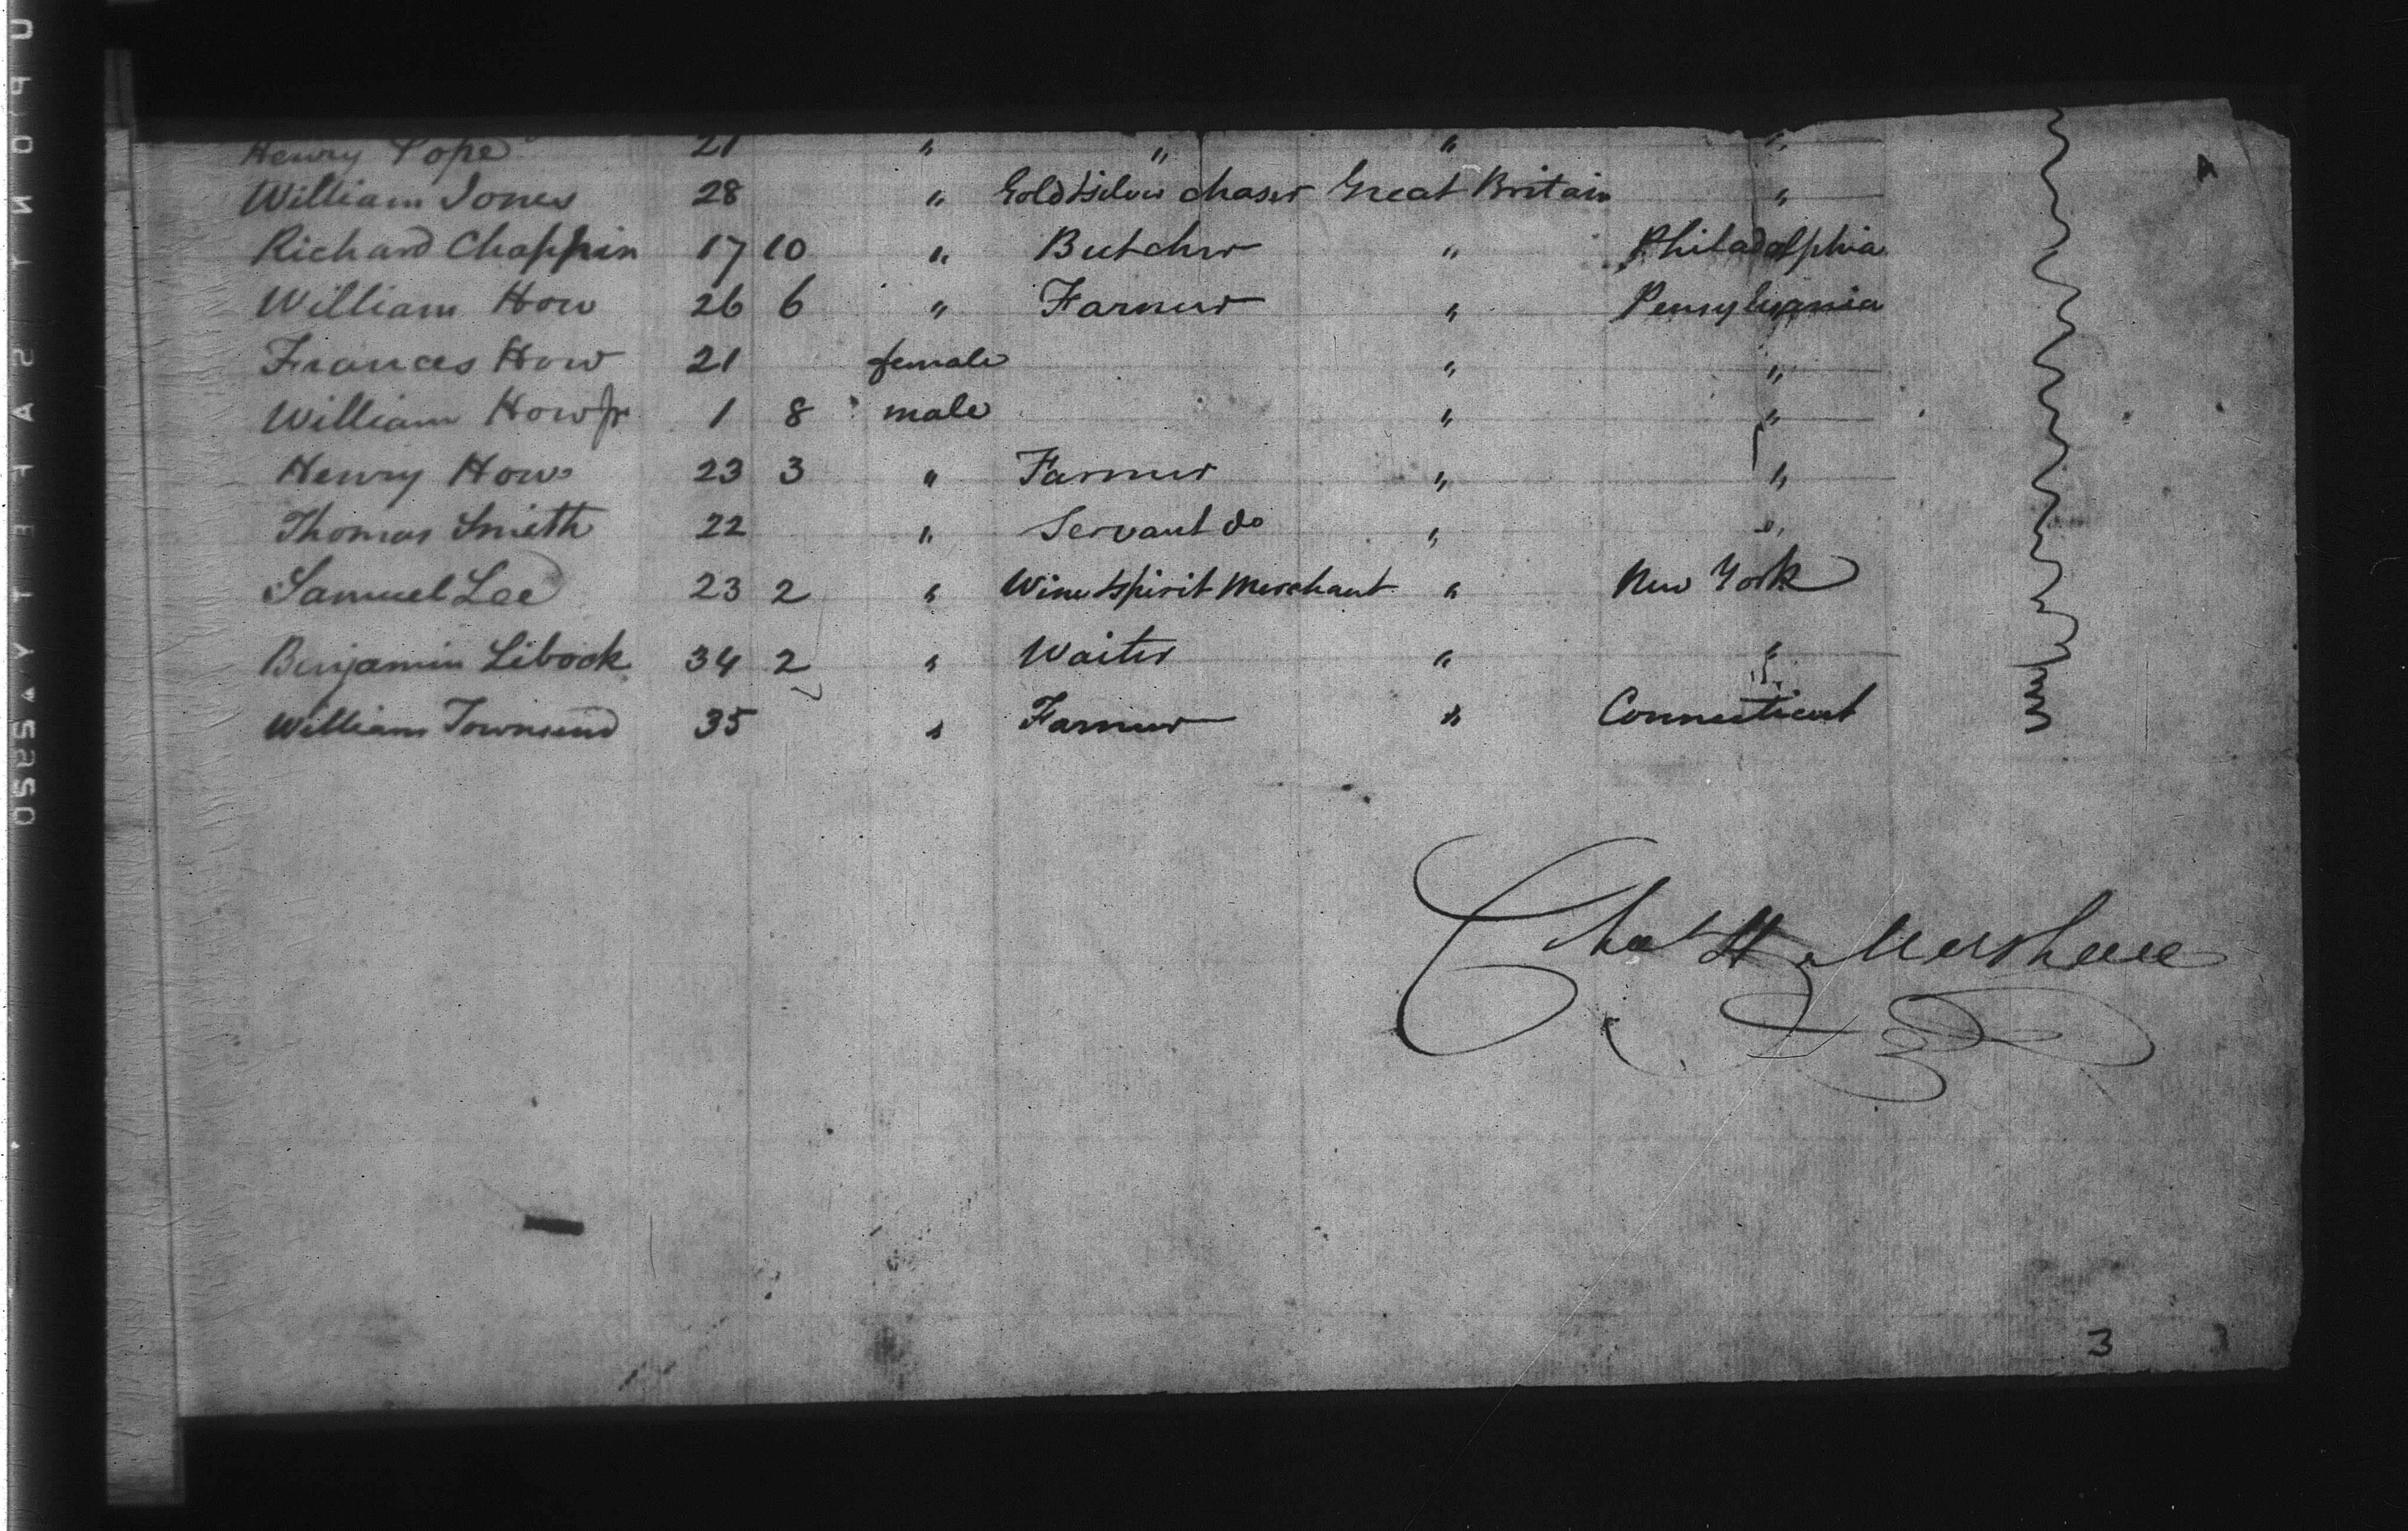 Henry Pope 21 " " " "
William Jones 28 " Gold & silver chaser Great Britain "
Richard Chappin 17 10 " Butcher " Philadelphia
William How 26 6 " Farmer " Pensylvania
Frances How 21 female " "
William How Jr 1 8 male " "
Henry How 23 3 " Farmer " "
Thomas Smith 22 " Servant do " "
Samuel Lee 23 2 " Wine & spirit Merchant " New York
Benjamin Libook 34 2 " Waiter " "
William Townsend 35 " Farmer " Connecticut
Chas H Marshall
3